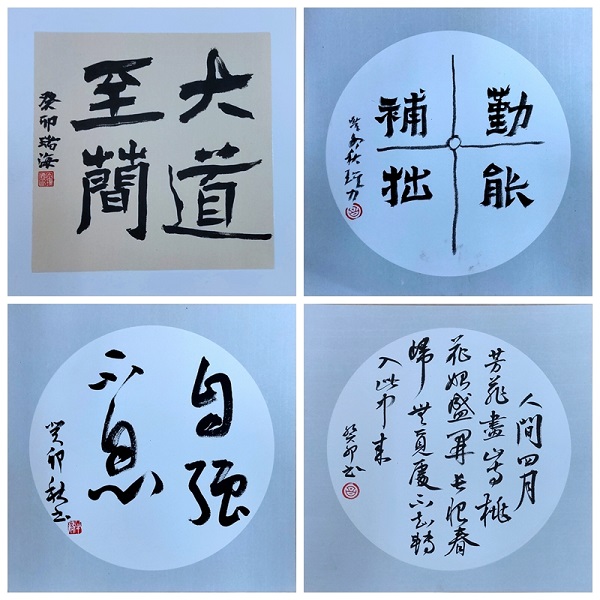 大道
至簡
癸卯
勤能
補拙
癸卯秋
自强
不息
癸卯秋书
人間四月
芳菲盡山寺桃
花始盛開長恨春
歸無覓處不知轉
入此中來
癸卯书